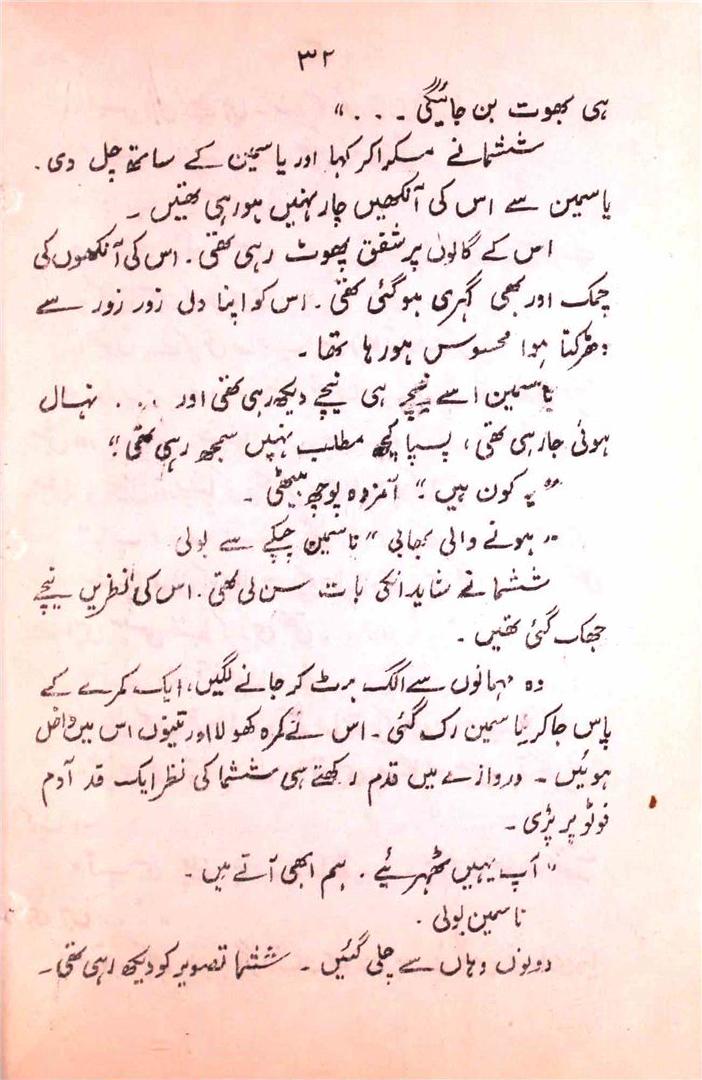 ۳۲
ہی بھوت بن جائیگی ۔ ۔ ۔ "
ششمانے مسکراکر کہا اور یاسمین کے ساتھ چل دی ۔
یاسمین سے اس کی آنکھیں چار نہیں ہورہی تھیں ۔
اس کے گالوں پر شفق پھوٹ رہی تھی ۔ اس کی آنکھوں کی
چمک اور بھی گہری ہوگئی تھی ۔ اس کو اپنا دل زور زور سے
دھڑکتا ہوا محسوس ہورہا تھا ۔
یاسمین اسے نیچے ہی نیچے دیکھ رہی تھی اور ۔ ۔ ۔ نہال
ہوئی جارہی تھی ، پسپا کچھ مطلب نہیں سمجھ رہی تھی ؟"
" یہ کون ہیں ؟" آمزدہ پوچھ بیٹھی ۔
" ہونے والی بھابی " یاسمین چپکے سے بولی
ششمانے شاید انکی بات سن لی تھی ۔ اس کی نظریں نیچے
جھک گئی تھیں ۔
وہ مہمانوں سے الگ ہٹ کر جانے لگیں ، ایک کمرے کے
پاس جاکر یاسمین رک گئی ۔ اس نے کمرہ کھولا اور تینوں اس میں داخل
ہوئیں ۔ دروازے میں قدم رکھتے ہی ششما کی نظر ایک قد آدم
فوٹو پر پڑی ۔
" آپ یہیں ٹھہرئیے ۔ ہم ابھی آتے ہیں ۔
یاسمین بولی ۔
دونوں وہاں سے چلی گئیں ۔ ششما تصویر کو دیکھ رہی تھی ۔